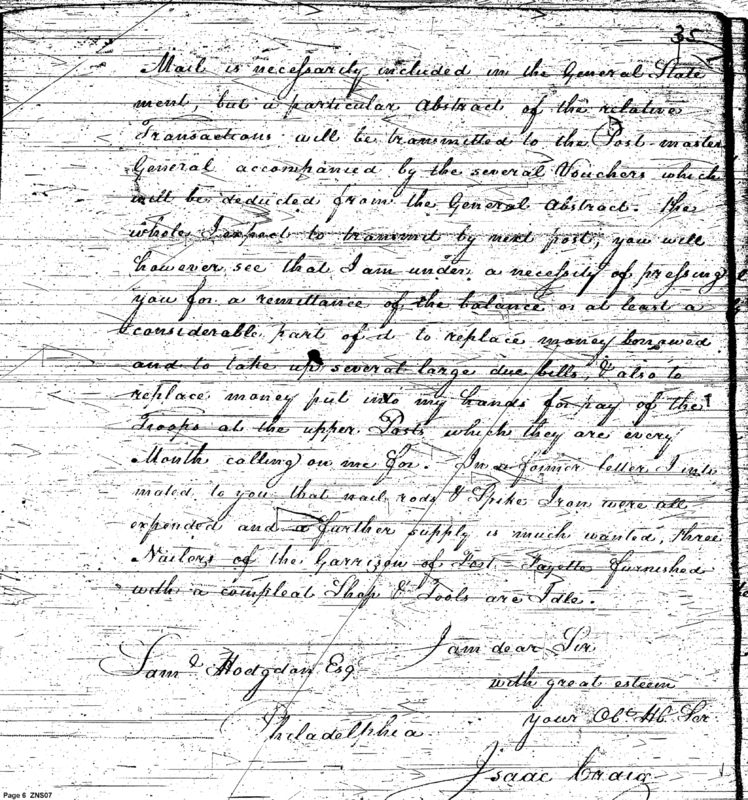 35
Mail is necessarily included in the General State
ment, but a particular Abstract of the relative
Transactions will be transmitted to the Post-master
General accompanied by the several Vouchers which
will be deducted from the General Abstract. The
whole I expect to transmit by next post, you will
however see that I am under a necessity of pressing
you for a remittance of the balance or at least a
considerable part of it to replace money borrowed
and to take up several large due bills, & also to
replace money put into my hands for pay of the
Troops at the upper Posts which they are every
Month calling on me for. In a former letter I inti
mated to you that nail rods & Spike Iron were all
expended and a further supply is much wanted, three
Nailors of the Garrison of Fort Fayette furnished
with a compleat Shop & Tools are Idle.
I am dear Sir
Saml Hodgdon Esqr
with great esteem
your Obt Hb Ser
Philadelphia
Isaac Craig
Page 6 ZNS07